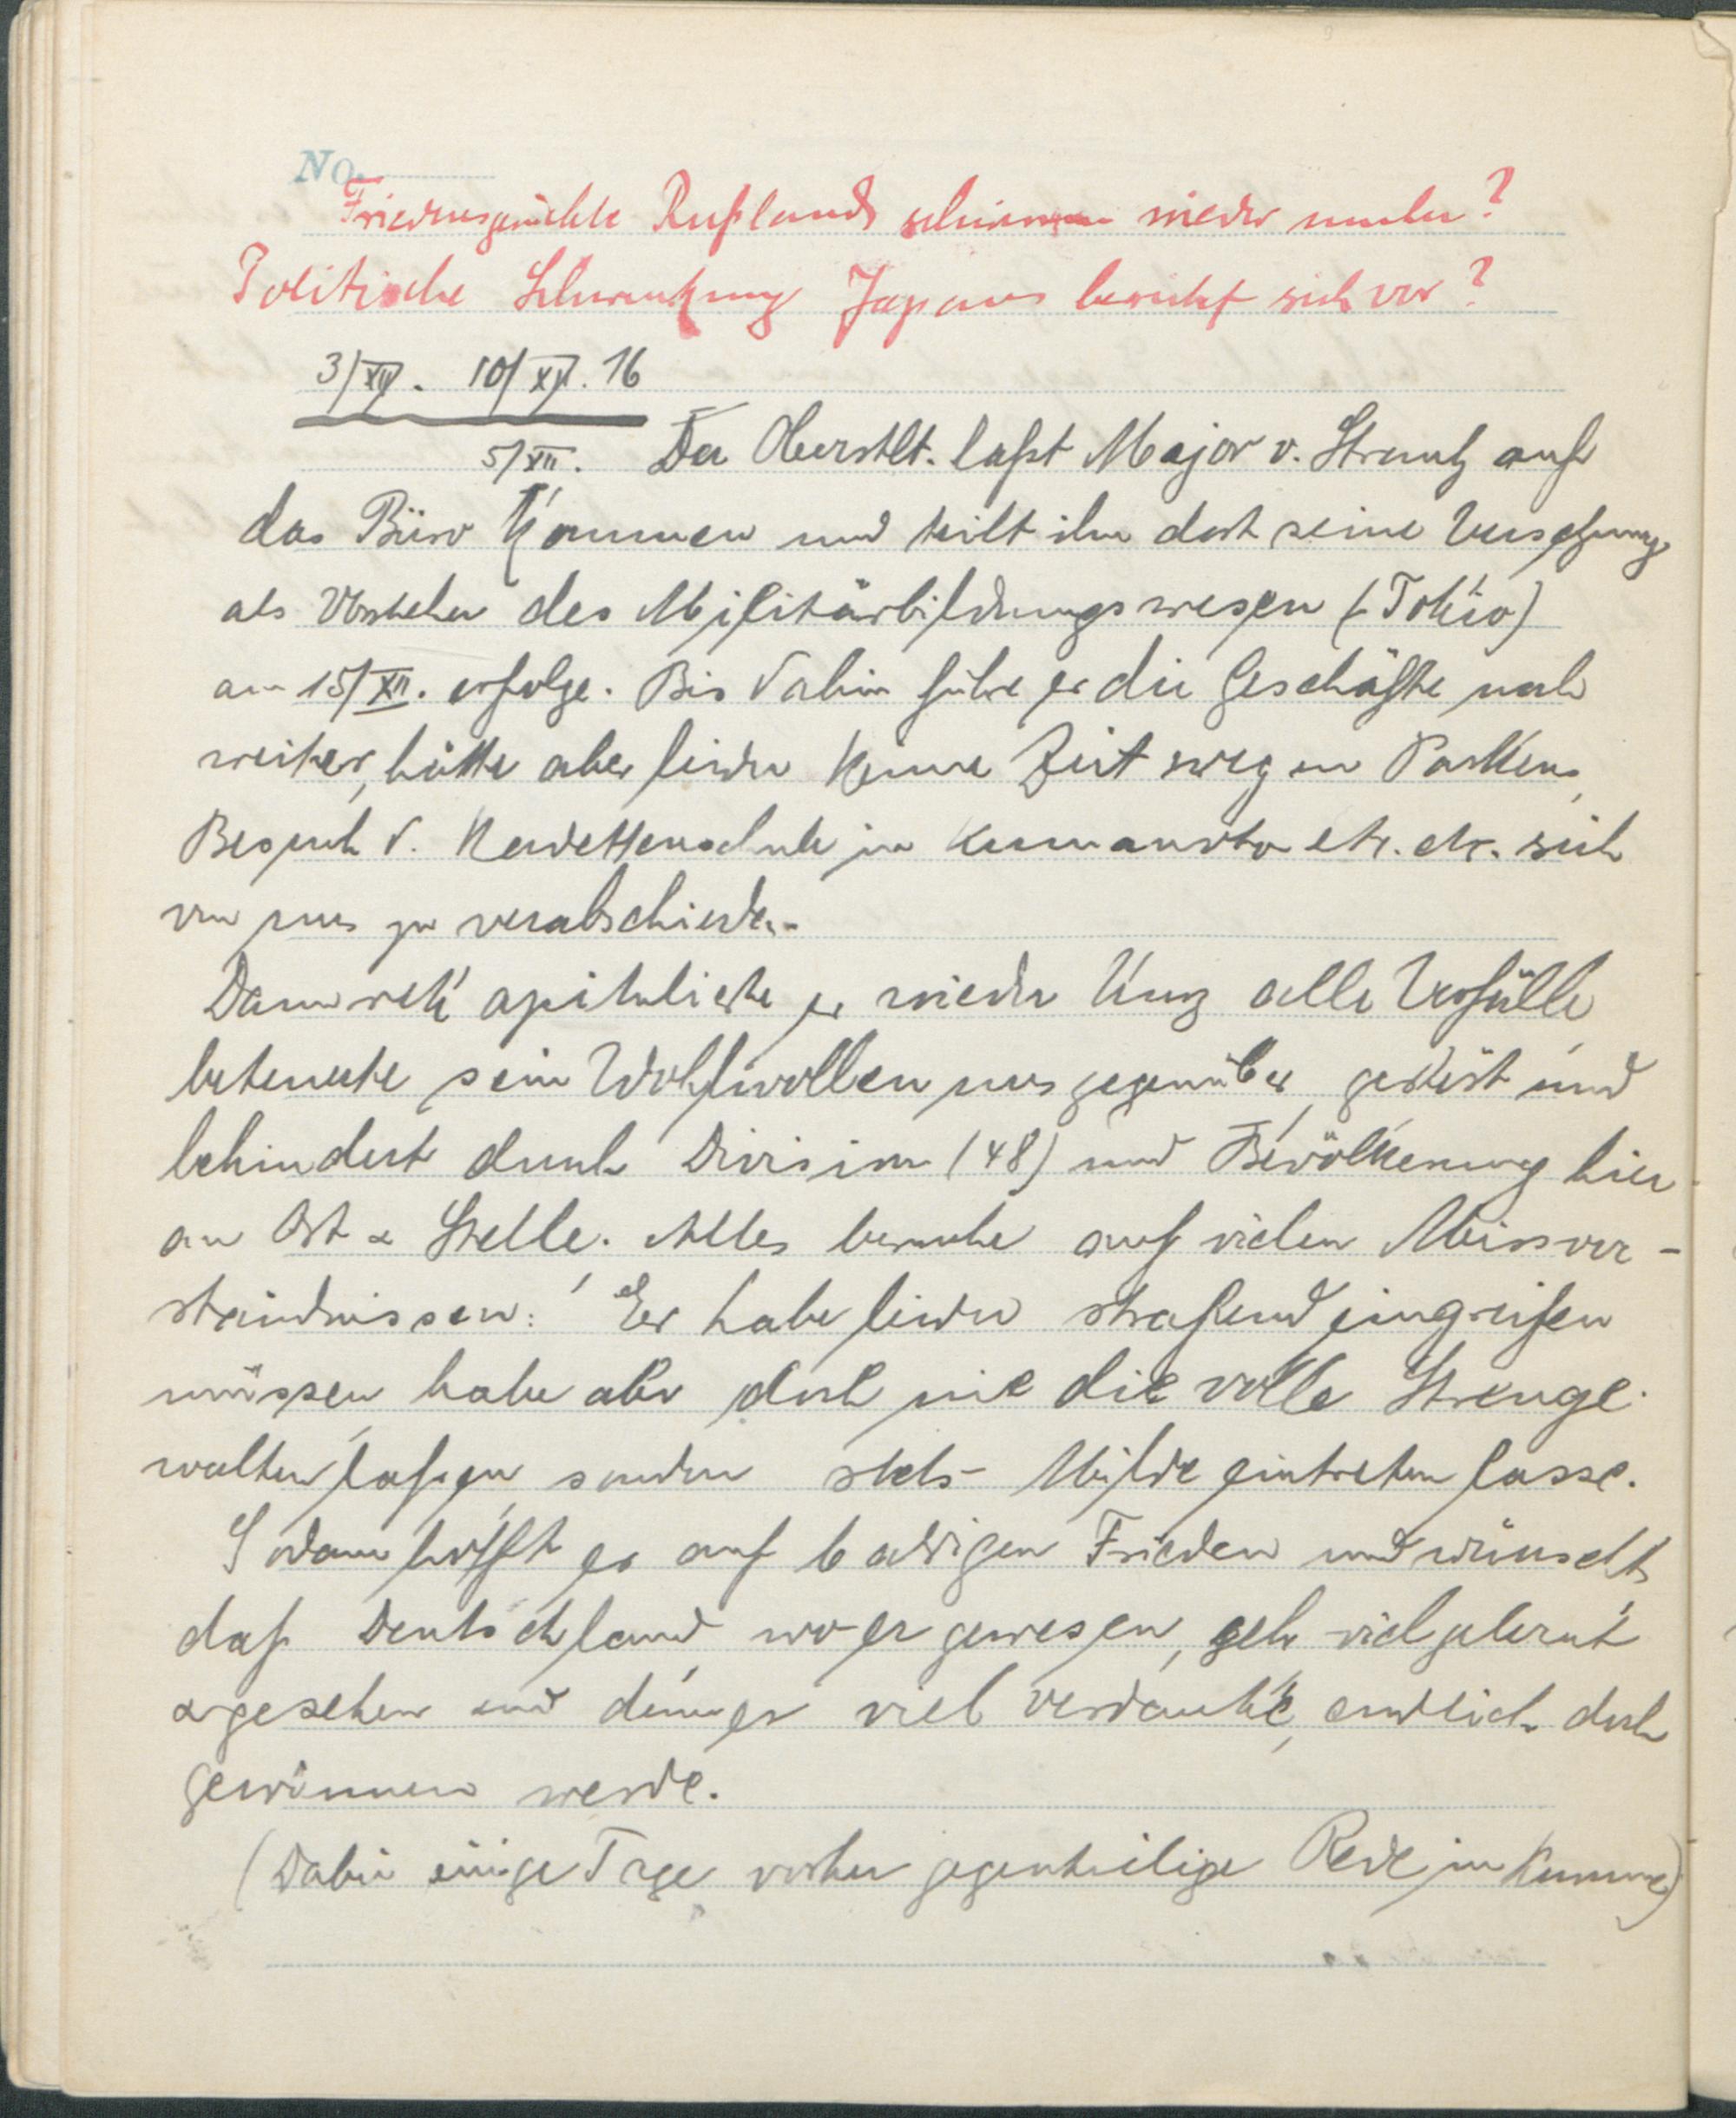 No.
Friedensgerüchte Rußlands schwirren wieder umher?
Politische Schwenkung Japans bereitet sich vor?
3/XII. 10/XII. 16
5/XII. Der Oberstlt. laßt Major v. Strantz auf
das Büro kommen und teilt ihm dort seine Versetzung
als Vorsteher des Militärbildungswesen (Tokio)
am 15/XII. erfolge. Bis dahin führe er die Geschäfte noch
weiter, hätte aber leider keine Zeit wegen Packens,
Besuch d. Kadettenschule in Kumamoto etc. etc. sich
von uns zu verabschieden.
Dann rekapitulierte er wieder kurz alle Vorfälle,
beteuerte sein Wohlwollen uns gegenüber, gestört und
behindert durch Division (48) und Bevölkerung hier
an Ort & Stelle. Alles beruhe auf vielen Missver-
ständnissen! Er habe leider strafend eingreifen
müssen, habe aber doch nie die volle Strenge
walten lassen sondern stets Milde eintreten lasse.
Sodann hofft er auf baldigen Frieden und wünscht,
daß Deutschland, wo er gewesen, sehr viel gelernt
& gesehen und dem er viel verdanke, endlich doch
gewinnen werde.
(Dabei einige Tage vorher gegenteilige Rede in Kurume)